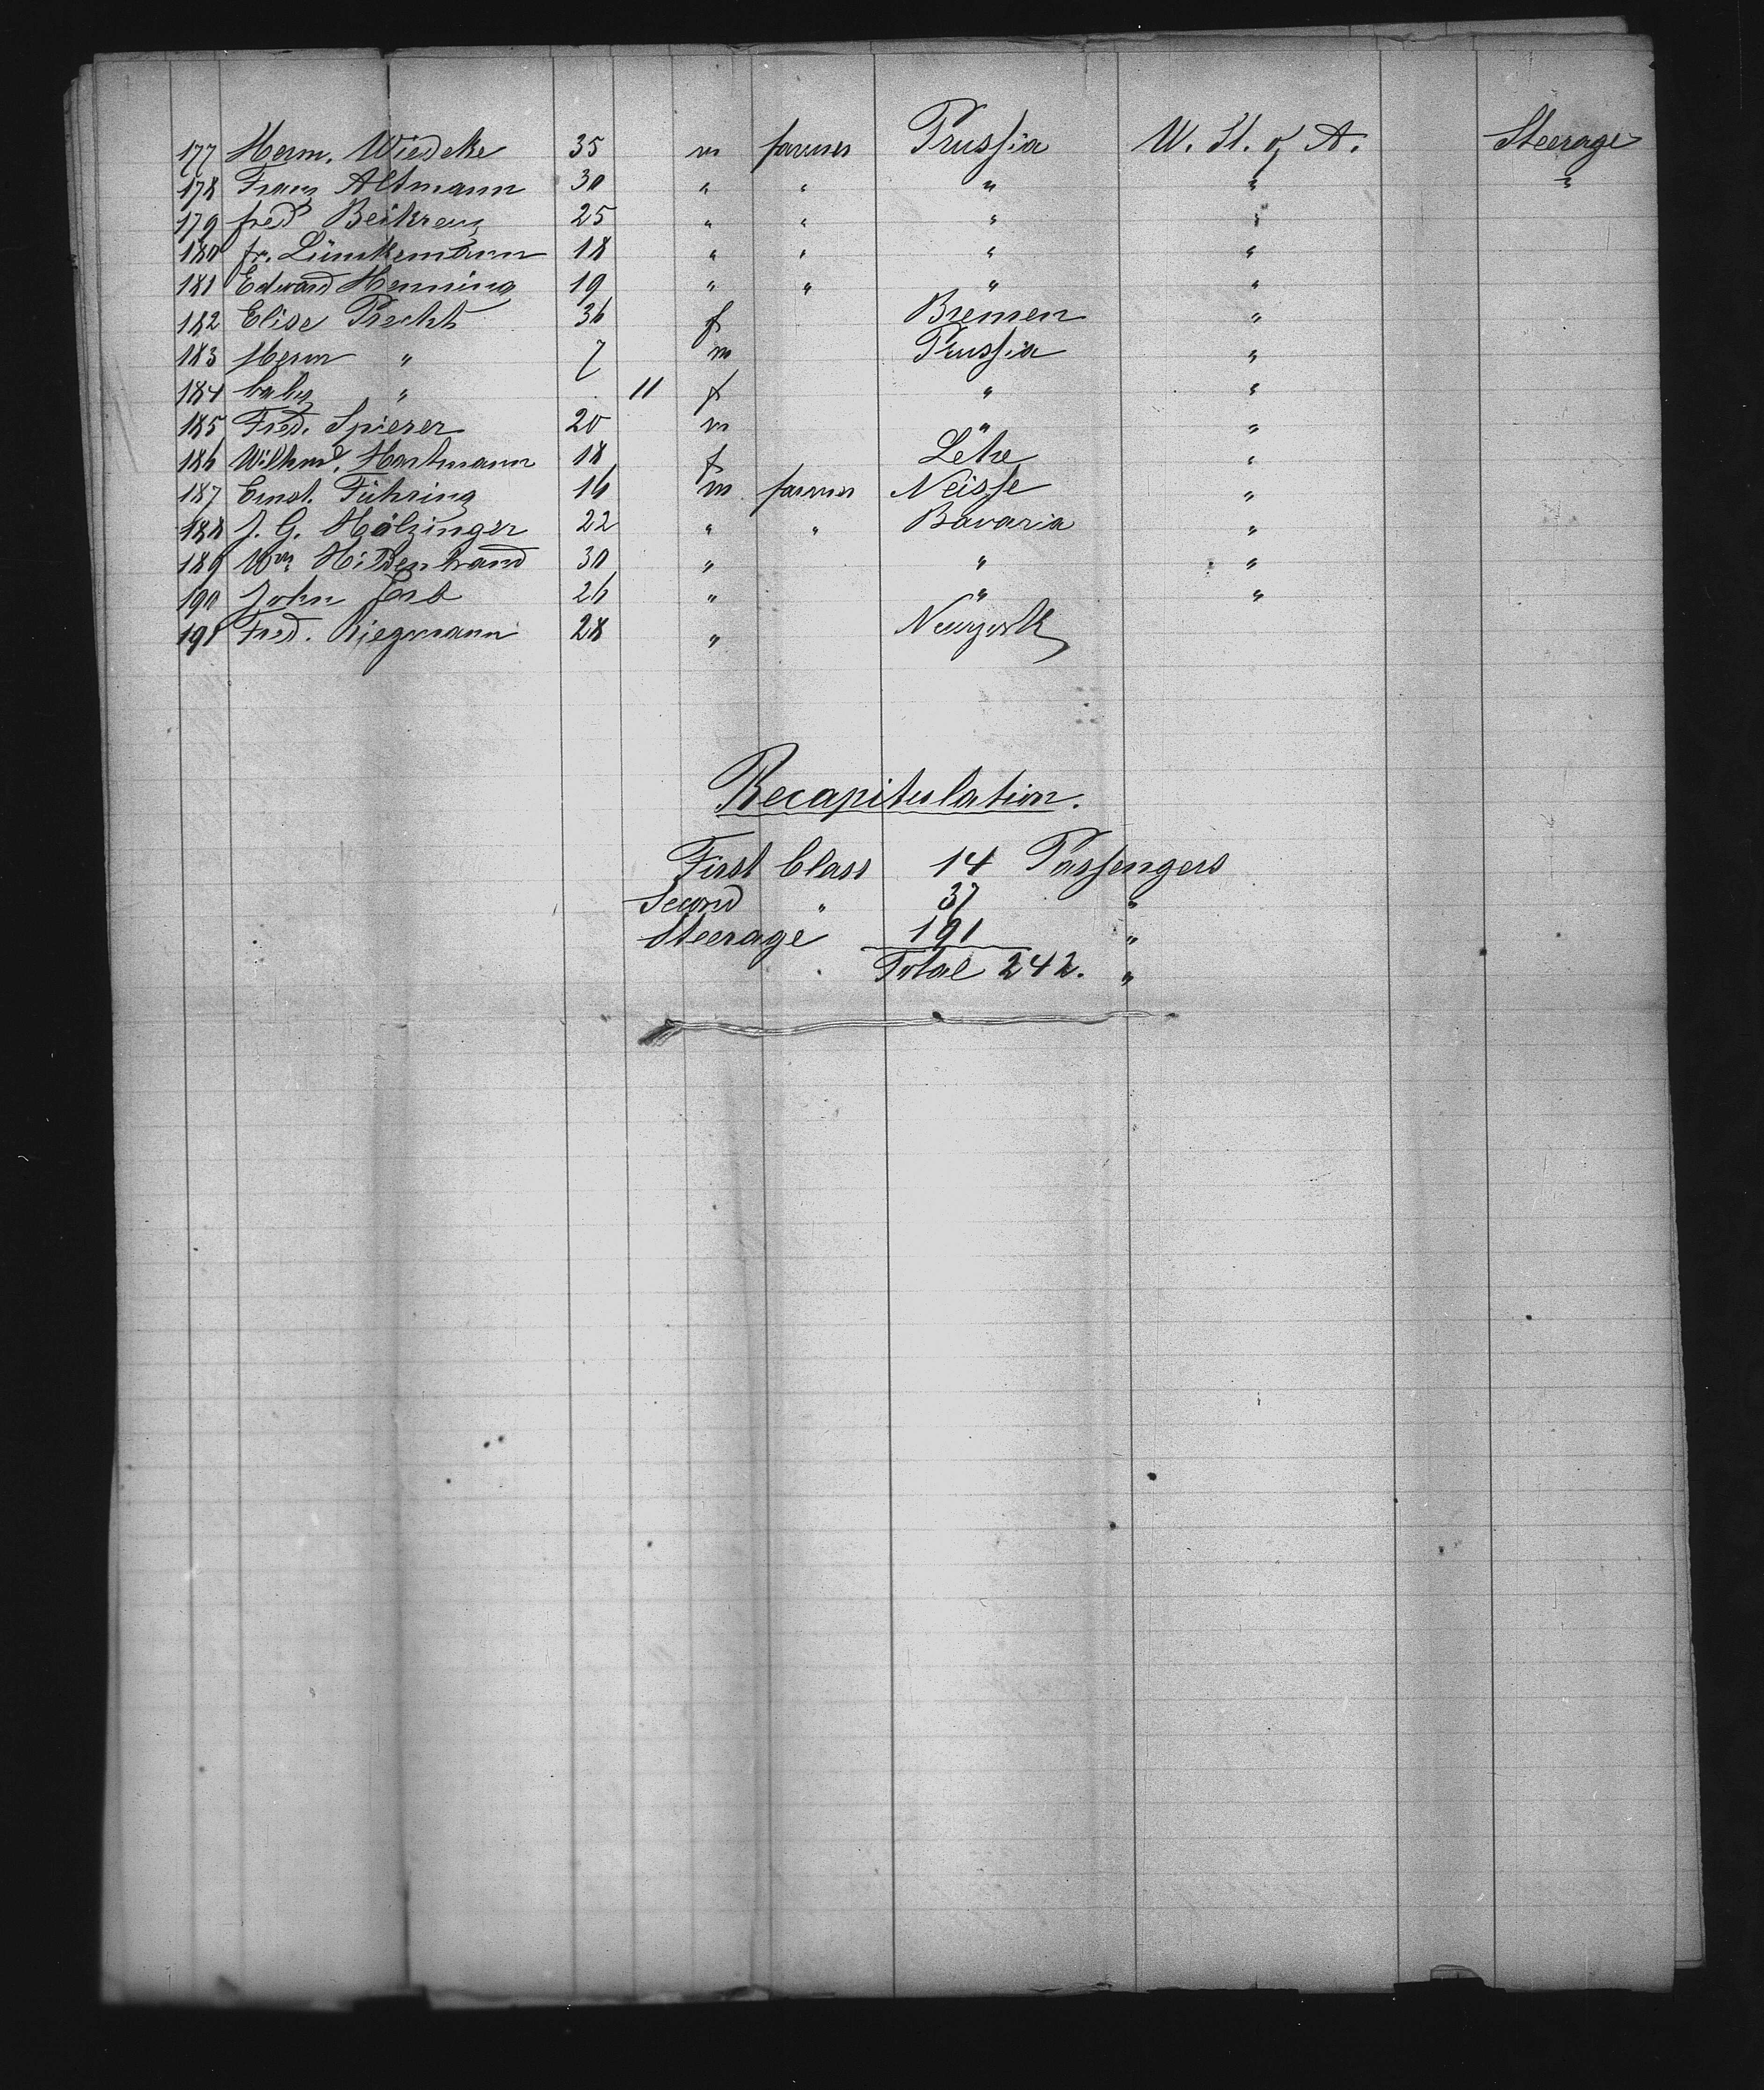 177 Herm. Wiedeke 35 m farmer Prussia U. St. of A. Steerage
178 Franz Altmann 30 " " " " "
179 fred Beikreuz 25 " " " "
180 fr. Lümkemann 18 " " " "
181 Edward Henning 19 " " " "
182 Elise Precht 36 f Bremen "
183 Herm " 7 m Prussia "
184 baby " 11 f " "
185 Fred. Spierer 20 m " "
186 Wilhmd. Hartmann 18 f Lehe "
187 Ernst. Führing 16 m farmer Neisse "
188 J. G. Hölzinger 22 " " Bavaria "
189 Wm Hildenbrand 30 " " "
190 John 26 " " "
191 Fred. Riegmann 28 " Newyork
Recapitulation.
First Class 14 Passengers
Second " 37 "
Steerage 191 "
Total 242. "